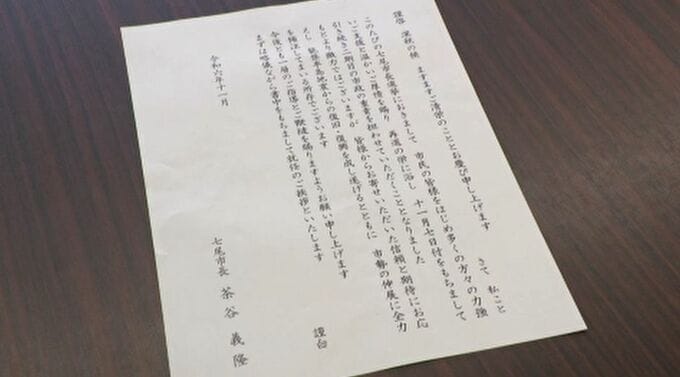 謹啓　深秋の候　ますますご清栄のこととお慶び申し上げます
さて　私こと
このたびの七尾市長選挙におきまして　市民の皆様をはじめ多くの方々の力強
いご支援と温かいご厚情を賜り　再選の栄に浴し　十一月七日付をもちまして
引き続き二期目の市政の重責を担わせていただくこととなりました
もとより微力ではございますが　皆様からお寄せいただいた信頼と期待にお応
えし　能登半島地震からの復旧・復興を成し遂げるとともに　市勢の伸展に全力
を傾注してまいる所存でございます
今後とも一層のご指導とご鞭撻を賜りますようお願い申し上げます
まずは略儀ながら書中をもちまして就任のご挨拶といたします
謹白
令和六年十一月
七尾市長　茶谷　義隆